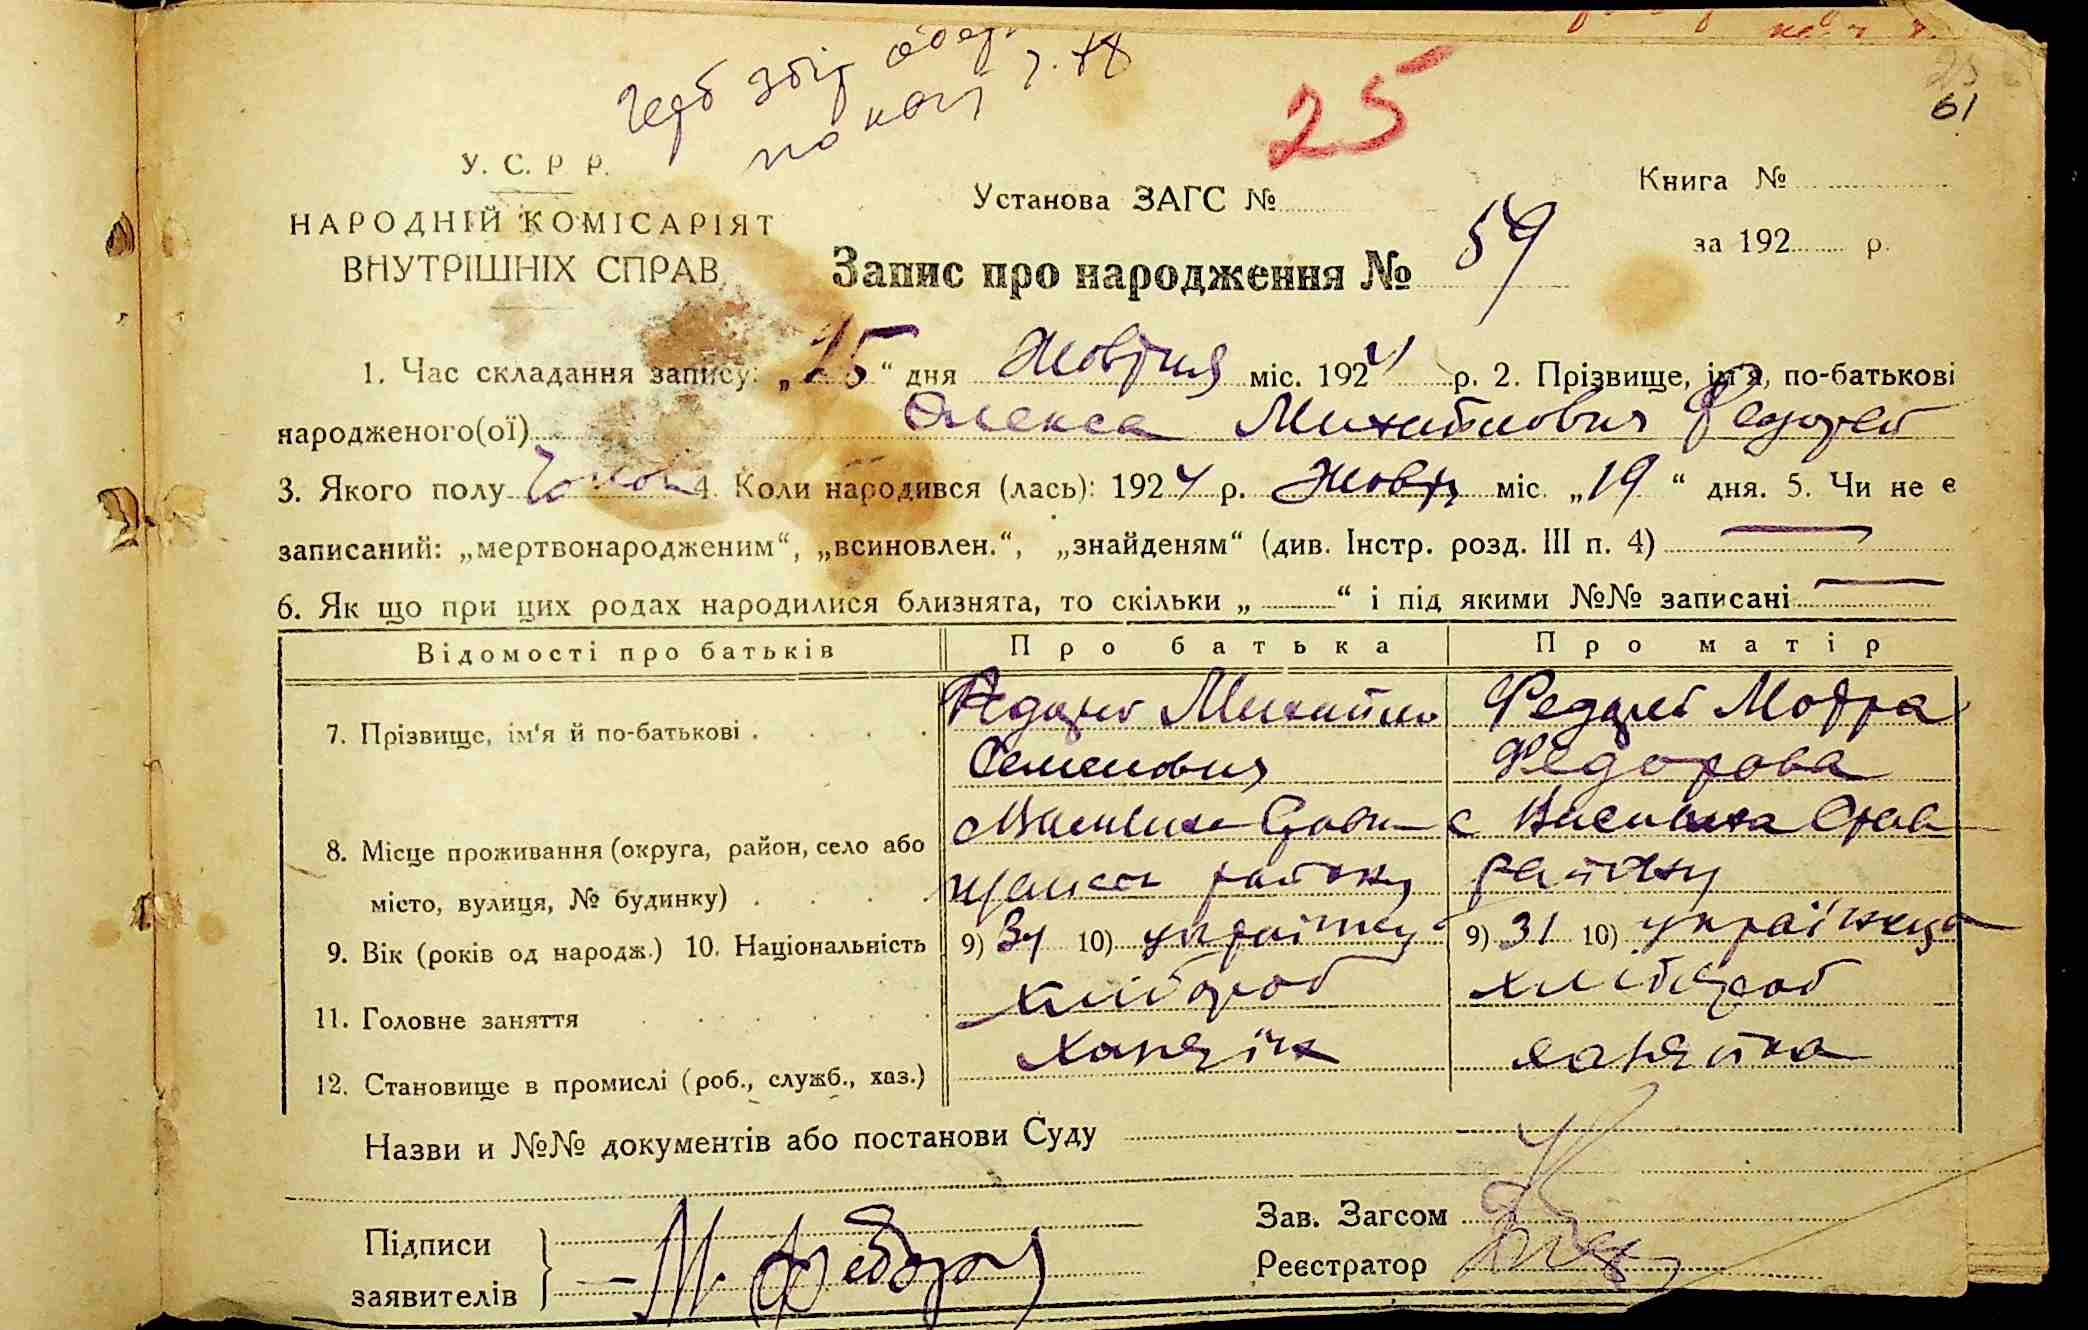 Герб збір
25
61
У. С. Р. Р.
НАРОДНІЙ КОМІСАРІЯТ
ВНУТРІШНІХ СПРАВ
Установа ЗАГС №
Книга №
за 192 р.
Запис про народження № 59
1. Час складання запису: „25“ дня Жовтня міс. 1924 р. 2. Прізвище, ім'я, по-батькові
народженого(ої) Олекса Михайлович
3. Якого полу 4. Коли народився (лась): 1924 р. Жовт міс. „19“ дня. 5. Чи не є
записаний: „мертвонародженим“, „всиновлен.“, „знайденям“ (див. Інстр. розд. III п. 4)
6. Як що при цих родах народилися близнята, то скільки „ “ і під якими №№ записані
Відомості про батьків Про батька Про матір
7. Прізвище, ім'я й по-батькові Михайло
Семенович Федорова
8. Місце проживання (округа, район, село або
місто, вулиця, № будинку) району району
9. Вік (років од народж.) 10. Національність 9) 34 10) 9) 31 10) українка
11. Головне заняття хлібороб хлібороб
12. Становище в промислі (роб., служб., хаз.) хазяїн хазяйка
Назви и №№ документів або постанови Суду
Підписи
заявителів
М. Федорец
Зав. Загсом
Реєстратор